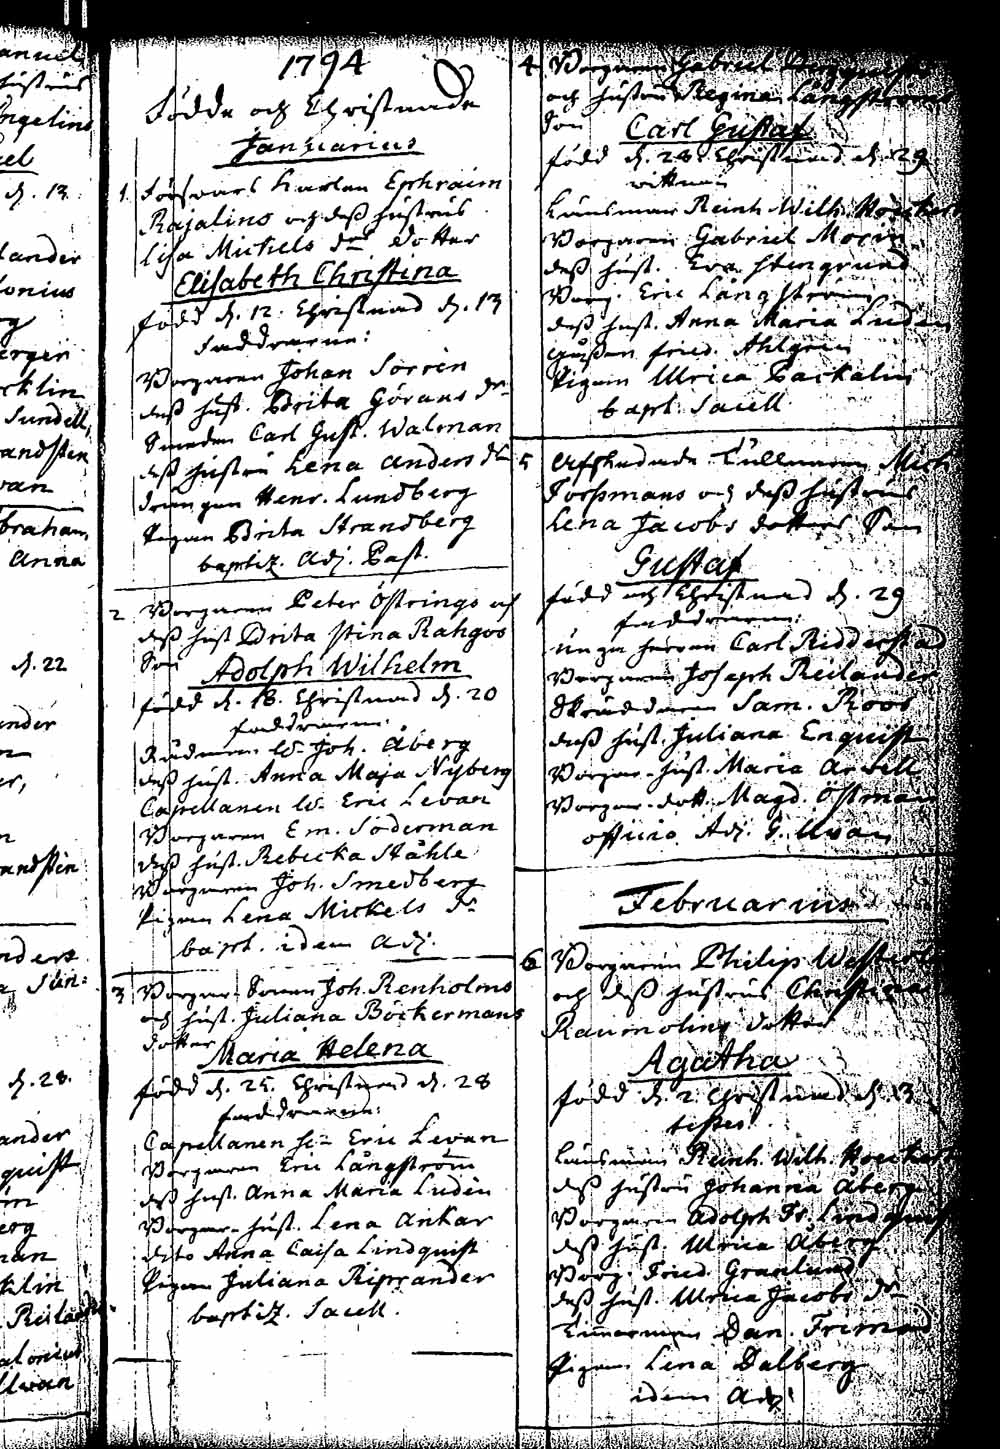 anuel
hustrus
ngelins
el
d. 13
lander
lonius
rg
erger
rcklin
Sundell,
andsten
van
braham
Anna
d. 22
ander
n
er,
n
andsten
nders
d. 28.
ander
quist
erg
man
klin
Reiland
alonius
Uvan
1794
Födde och Christnade
Januarius
1. Försvars Karlen Ephraim
Rajalins och dess hustrus
Lisa Mickels dr dotter
Elisabeth Christina
född d. 12. Christnad d. 13
Faddrarne:
Borgaren Johan Sorrèn
dess hust. Brita Görans dr
Smeden Carl Gust. Walman
dess hustru Lena Anders dr
drängen Henr. Lundberg
Pigan Brita Strandberg
baptiz. Adj. Past.
2 Borgaren Peter Östrings och
dess hust Brita Stina Rahgos
Son
Adolph Wilhelm
född d. 18. Christnad d. 20
faddrarne:
Rådman W. Joh. Åberg
dess hust. Anna Maja Nyberg
Capellanen W. Eric Levan
Borgaren Em. Söderman
dess hust. Rebecka Ståhle
Borgaren Joh. Smedberg
Pigan Lena Mickels dr
bapt. idem Adj.
3 Borgar-Sonen Joh. Renholms
och hust. Juliana Böckermans
dotter
Maria Helena
född d. 25. Christnad d. 28
faddrarne:
Capellanen Hr Eric Levan
Borgaren Eric Långström
dess hust. Anna Maria Ludèn
Borgar-hust. Lena Ankar
dito Anna Caisa Lindquist
Pigan Juliana Riprander
baptiz. Sacell.
4 Borgaren Gabriel
och hustru Regina Långströms
Son
Carl Gustaf
född d. 28. Christnad d. 29
vittnen
Länsman Reinh. Wilh. Hoeckert
Borgaren Gabriel Morin
dess hust. Eva Stengrund
Borg. Eric Långström
dess hust. Anna Maria Ludèn
Gesällen Fried. Ahlgren
Pigan Ulrica Packalin
bapt. Sacell
5 Afskedade Tullnaren Mich
Forssmans och dess hustrus
Lena Jacobs dotters Son
Gustaf
född och Christnad d. 29
faddrarne:
unga herren Carl Ridderstad
Borgaren Joseph Reilander
Skräddaren Sam. Roos
dess hust. Juliana Enquist
Borgar-hust. Maria Arvell
Borgar-dott. Magd. Östman
officio Adj. G. Uvan
Februarius
6 Borgaren Philip
och dess hustrus Christina
Raumolins dotter
Agatha
född d. 2 Christnad d. 3
testes.
Länsman Reinh. Wilh. Hoeckert
dess hustru Johanna Åberg
Borgaren Adolph Fr. Lindquist
dess hust. Ulrica Åberg
Borg. Fried. Granlund
dess hust. Ulrica Jacobs dr
Timmerman Dan. Friman
Pigan Lena Dalberg
idem Adj.